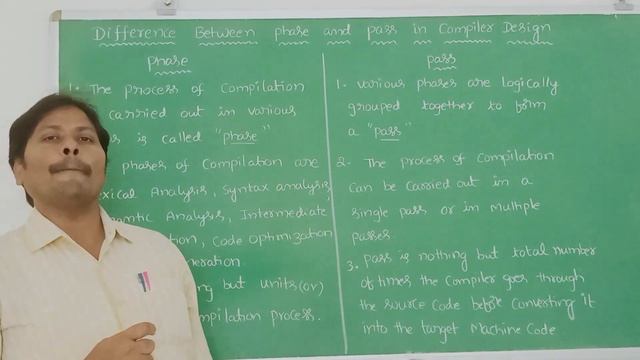 Difference Between phase and pass in Compiler Design
phase
1. The process of Compilation
carried out in various
is called "phase"
phases of Compilation are
Lexical Analysis, Syntax analysis,
Semantic Analysis, Intermediate
Code Optimization
but units (or)
Compilation process.
pass
1. various phases are logically
grouped together to form
a "pass"
2. The process of Compilation
Can be carried out in a
single pass or in multiple
passes.
3. pass is nothing but total number
of times the Compiler goes through
the source Code before Converting it
into the target Machine Code